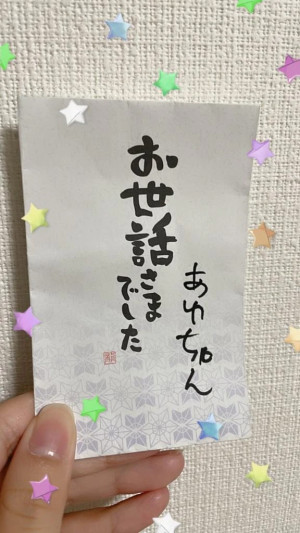 お世話さまでした
あゆちゃん